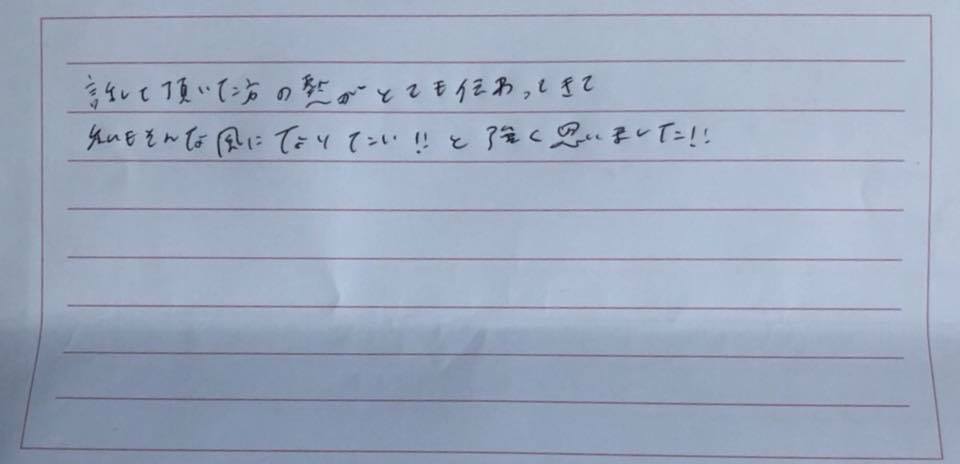 話して頂いた方の熱がとても伝わってきて
私もそんな風になりたい!!と強く思いました!!